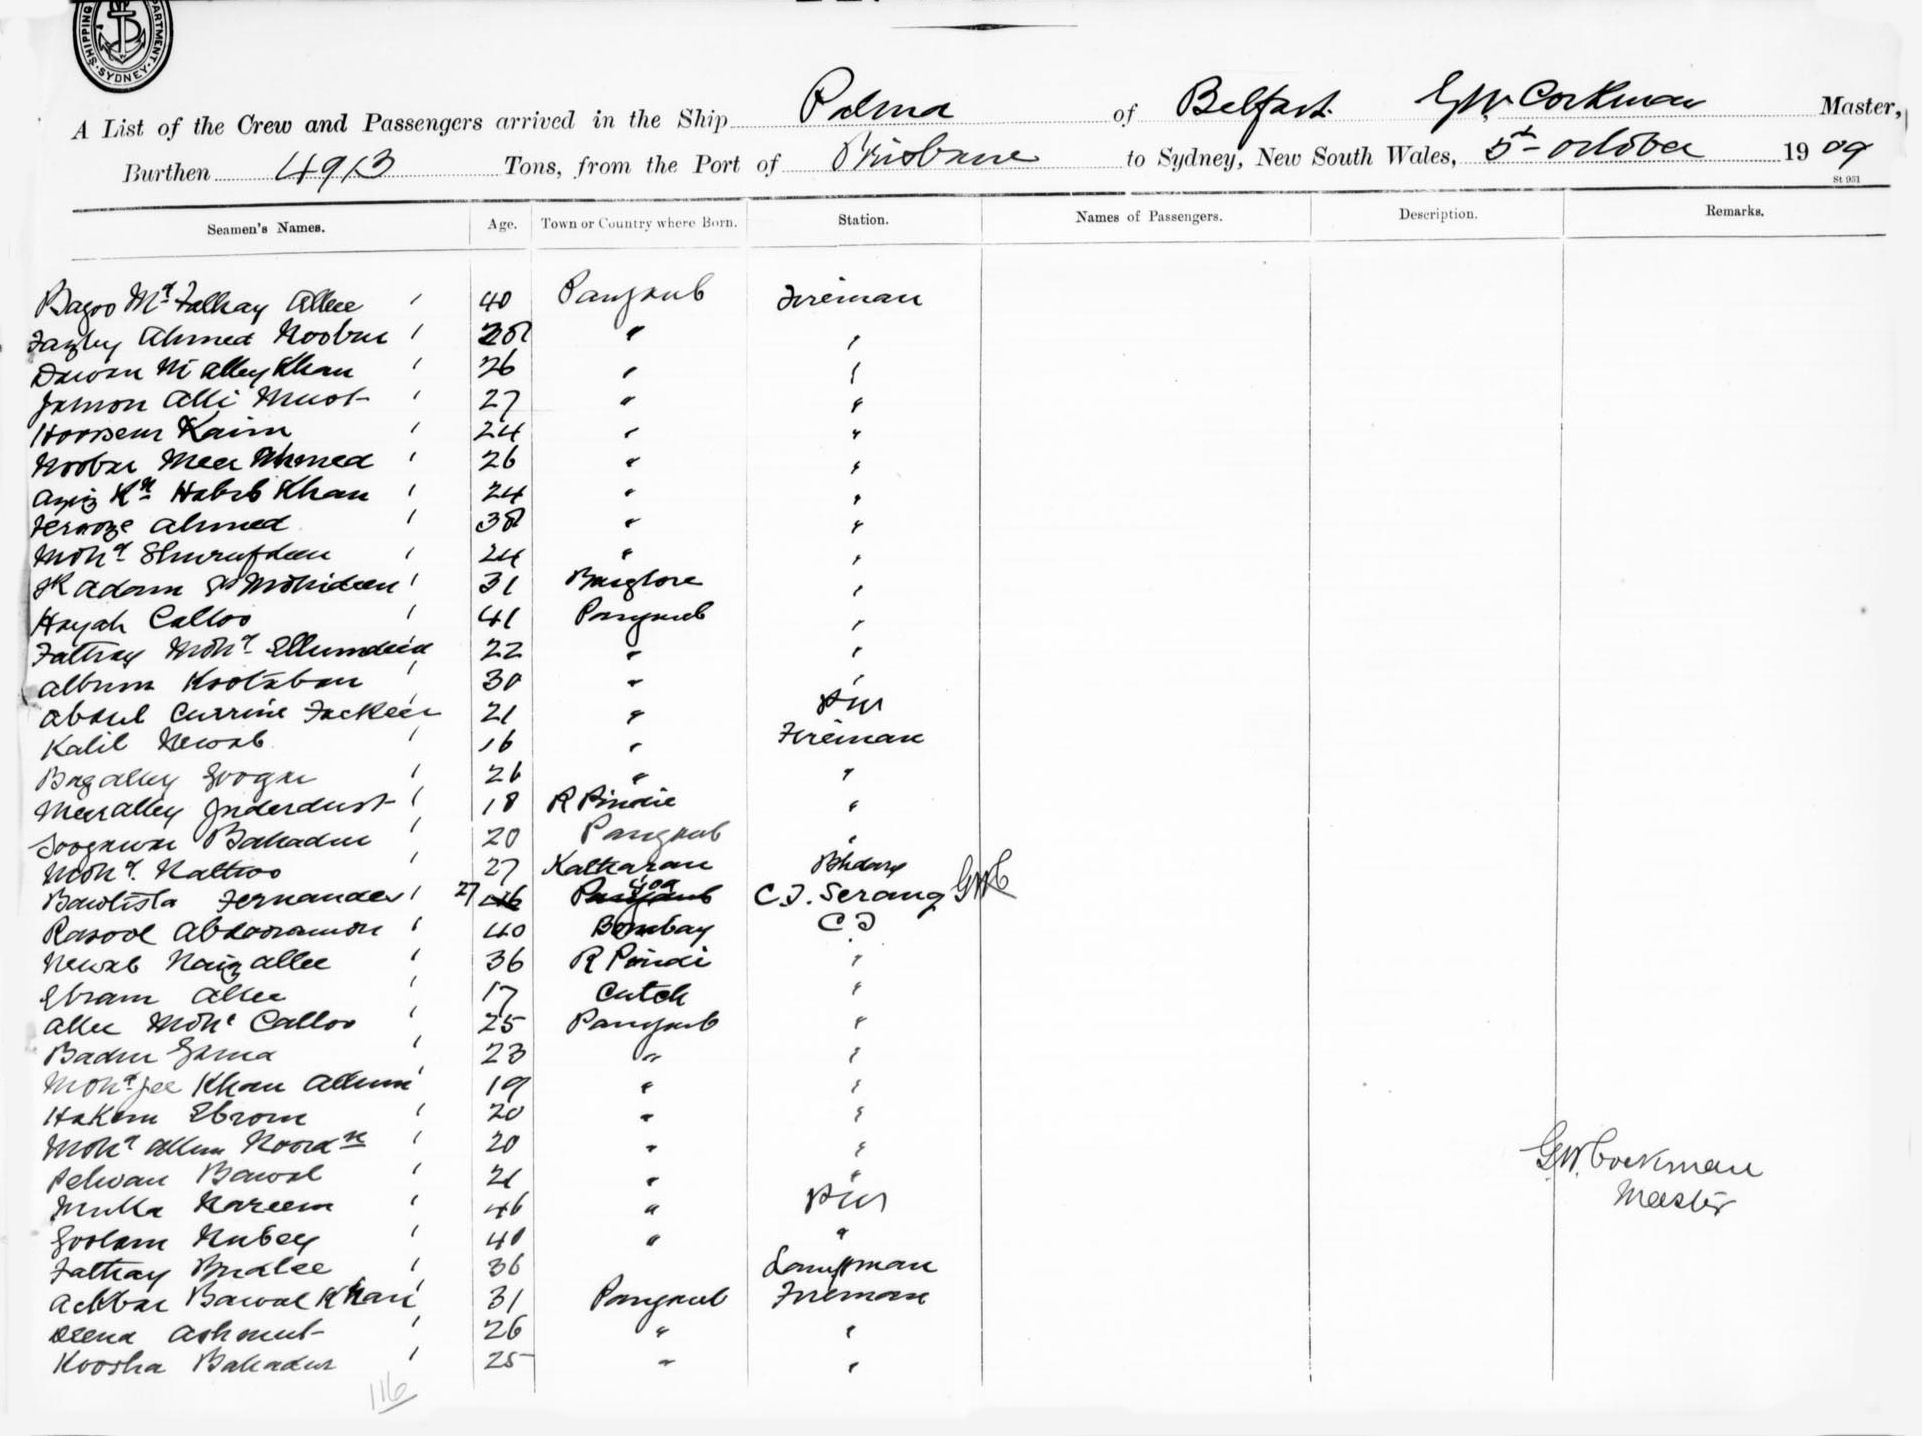 SHIPPING DEPARTMENT. SYDNEY
A List of the Crew and Passengers arrived in the Ship Palma of Belfast. G.W. Cockman Master,
Burthen 4913 Tons, from the Port of Brisbane to Sydney, New South Wales, 5th October 1909
St 951
Seamen's Names. Age. Town or Country where Born. Station. Names of Passengers. Description. Remarks.
Bagoo Md Falhay Allee ' 40 Panjaub Fireman
Fazley Ahmed Noobur ' 28 " "
Dewan Md Alley Khan ' 26 " "
Jamon Alli Must ' 27 " "
Hoosein Kaim ' 24 " "
Noobur Meer Ahmed ' 26 " "
Aziz Kn Habib Khan ' 24 " "
Feroze Ahmed ' 38 " "
Mohd Shurufdeen ' 24 " "
Sk Adam Sk Mohideen ' 31 Banglore "
Hayah Calloo ' 41 Panjaub "
Fathay Mohd Ellumdeid ' 22 " "
Allum Kootaban ' 30 " "
Abdul Currine Fackeer ' 21 "
Kalil Newab ' 16 " Fireman
Bagalley Googar ' 26 " "
Meeralley Jnderdust ' 18 R Pindie "
Bahadur ' 20 Panjaub "
Mohd Nattoo ' 27 Katkaran Bhdary
Bawtista Fernandes ' 27 46 Panjaub Goa C.T. Serang GWC
Rasool Abdooramon ' 40 Bombay C T
Newab Naiz Allee ' 36 R Pindi "
Ebram Allee ' 17 Cutch "
Allee Mohd Calloo ' 25 Panjaub "
Badur Gama ' 23 " "
Mohd Jee Khan Allum ' 19 " "
Hakem Ebrom ' 20 " "
Mohd Allum Noordn ' 20 " "
Pelwan Bawal ' 21 " "
Mulla Kareem ' 46 "
G.W. Cockman
Master
Goolam Nubey ' 40 " "
Fathay Budlee ' 36 Lampman
Ackbar Bawal Khan ' 31 Panjaub Fireman
Deena Ashmut ' 26 " "
Koosha Bahadur ' 25 " "
116